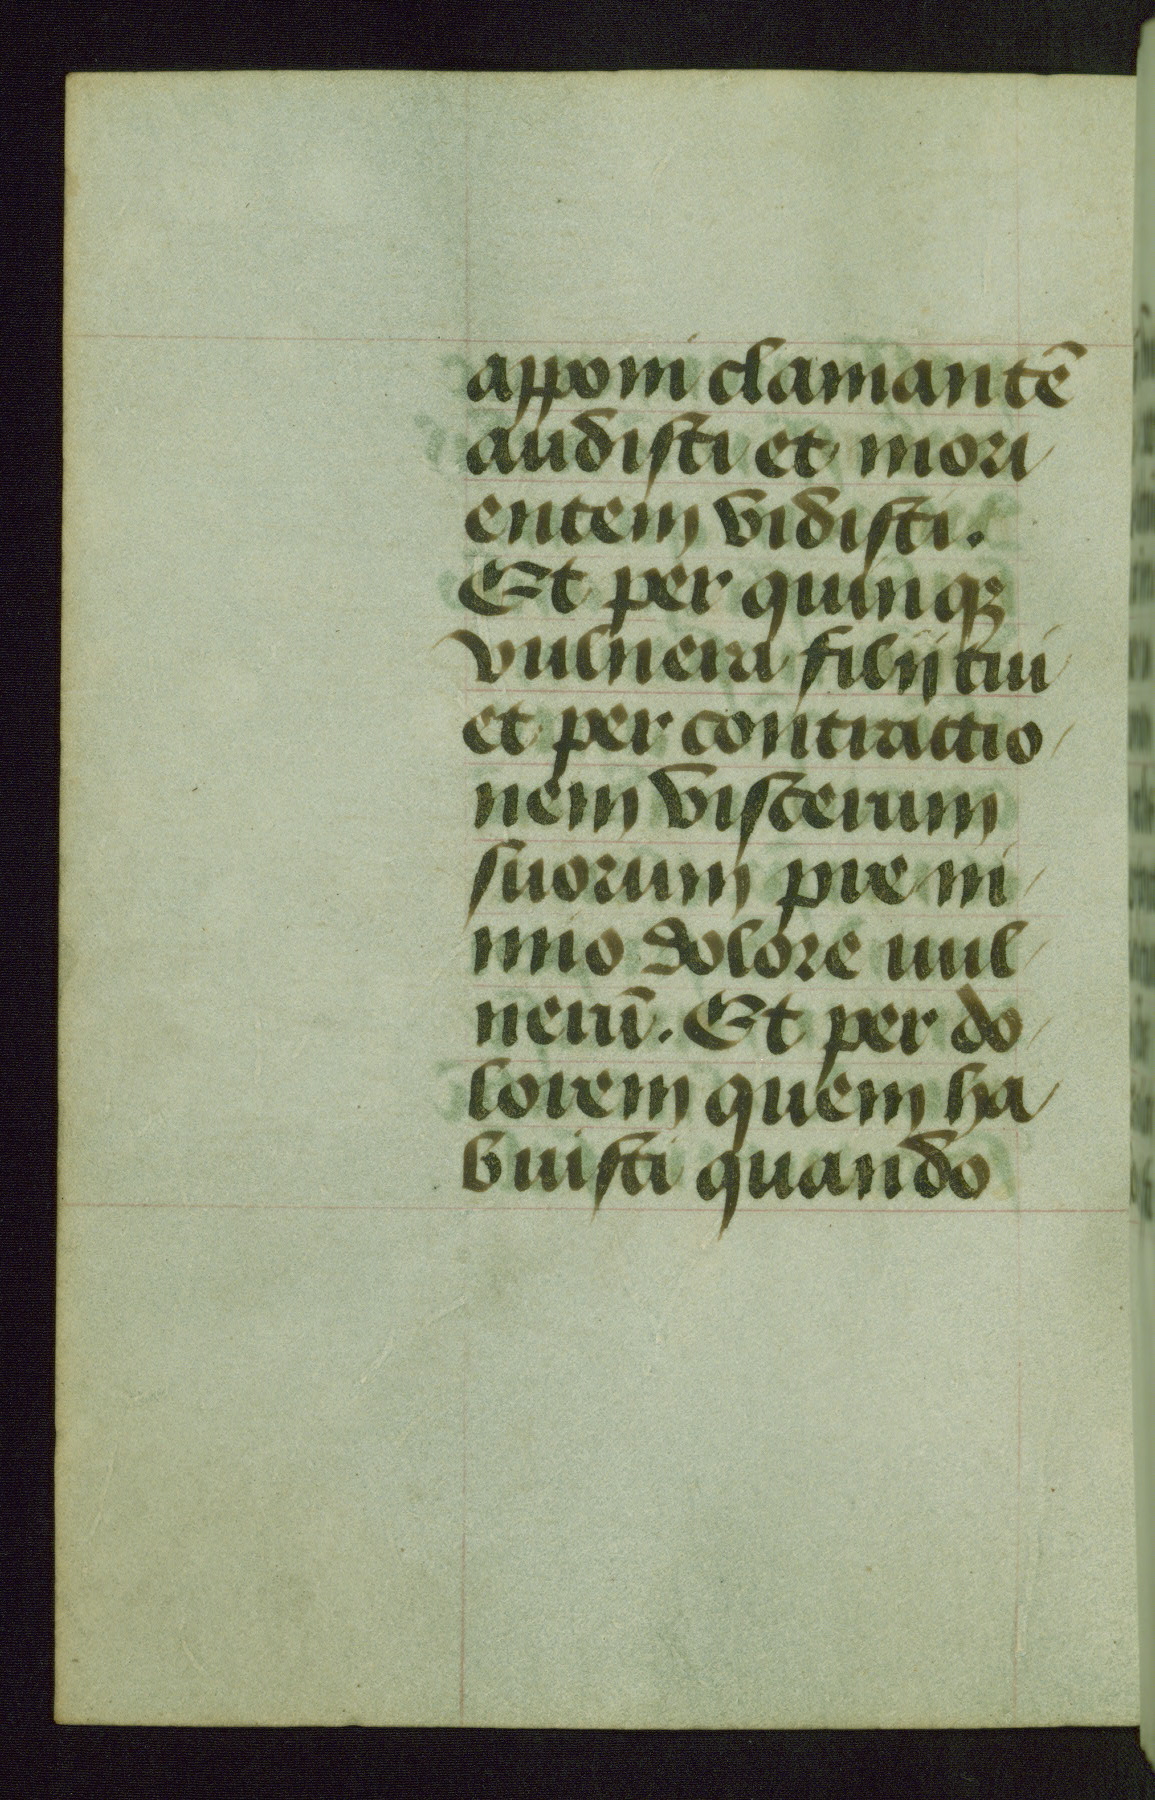 apponi clamantē
audisti et mori
entem vidisti.
Et per quinqꝫ
vulnera filij tui
et per contractio
nem viscerum
suorum pre ni
mio dolore uul
nerū. Et per do
lorem quem ha
buisti quando